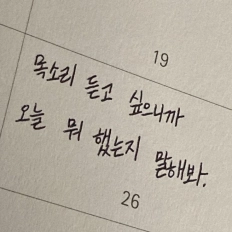 19
목소리 듣고 싶으니까
오늘 뭐 했는지 말해봐.
26